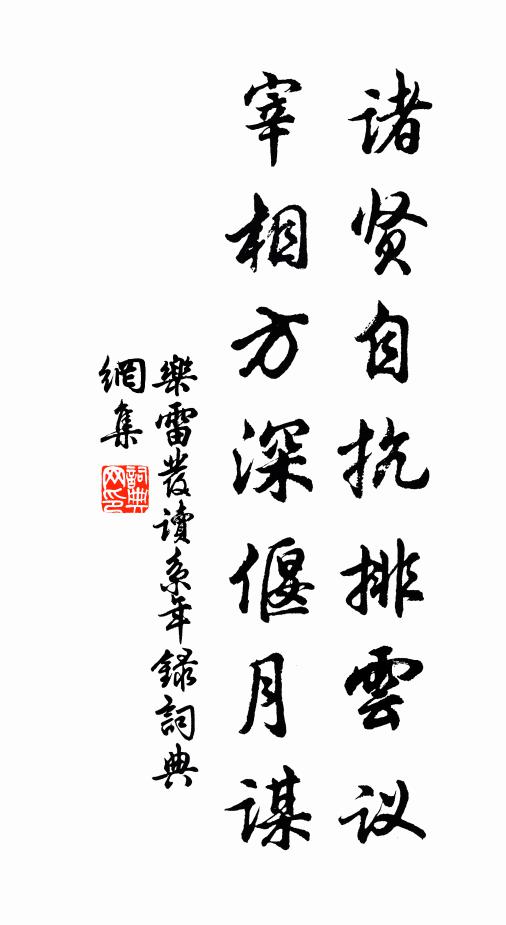 诸贤自抗排雲议
宰相方深偃月谋
樂雷發讀系年録詞典
網集
詞典网印